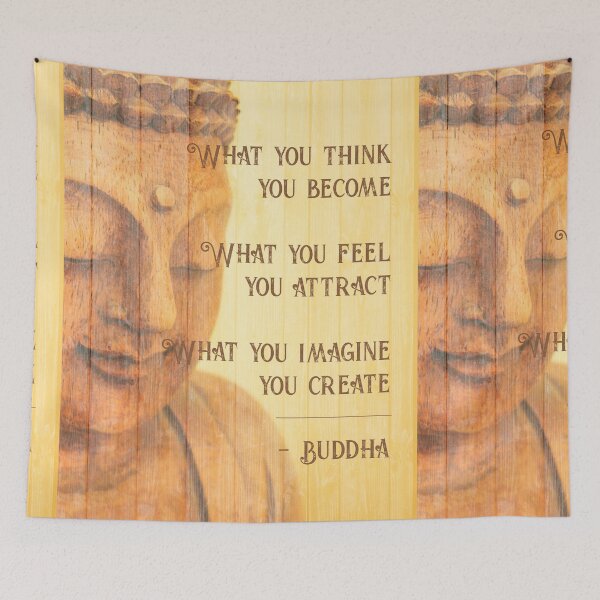 What you think
you become
What you feel
you attract
What you imagine
you create
- Buddha